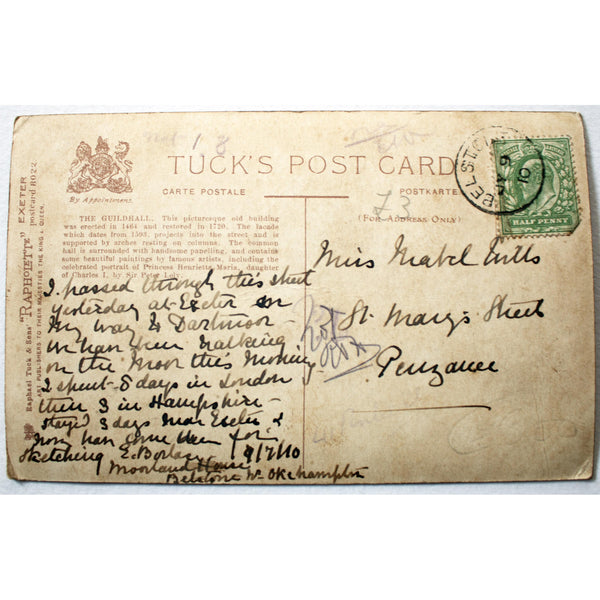 TUCK'S POST CARD
CARTE POSTALE
POSTKARTE
(FOR ADDRESS ONLY)
By Appointment.
THE GUILDHALL. This picturesque old building
was erected in 1464 and restored in 1720. The facade
which dates from 1593, projects into the street and is
supported by arches resting on columns. The common
hall is surrounded with handsome panelling, and contains
some beautiful paintings by famous artists, including the
celebrated portrait of Princess Henrietta Maria, daughter
of Charles I, by Sir Peter Lely.
Raphael Tuck & Sons' "RAPHOLETTE" EXETER
postcard R022
ART PUBLISHERS TO THEIR MAJESTIES THE KING & QUEEN.
I passed through this street
yesterday at Exeter on
my way to Dartmoor -
we have been walking
on the Moor this morning
I spent 5 days in London
then 3 in Hampshire -
stayed 3 days near Exeter &
now have come here for
sketching E. Borlase 9/7/10
Moorland House
Belstone Nr Okehampton
Miss Mabel
St. Mary's Street
Penzance
£3
18
BELSTO
9
10
HALF PENNY